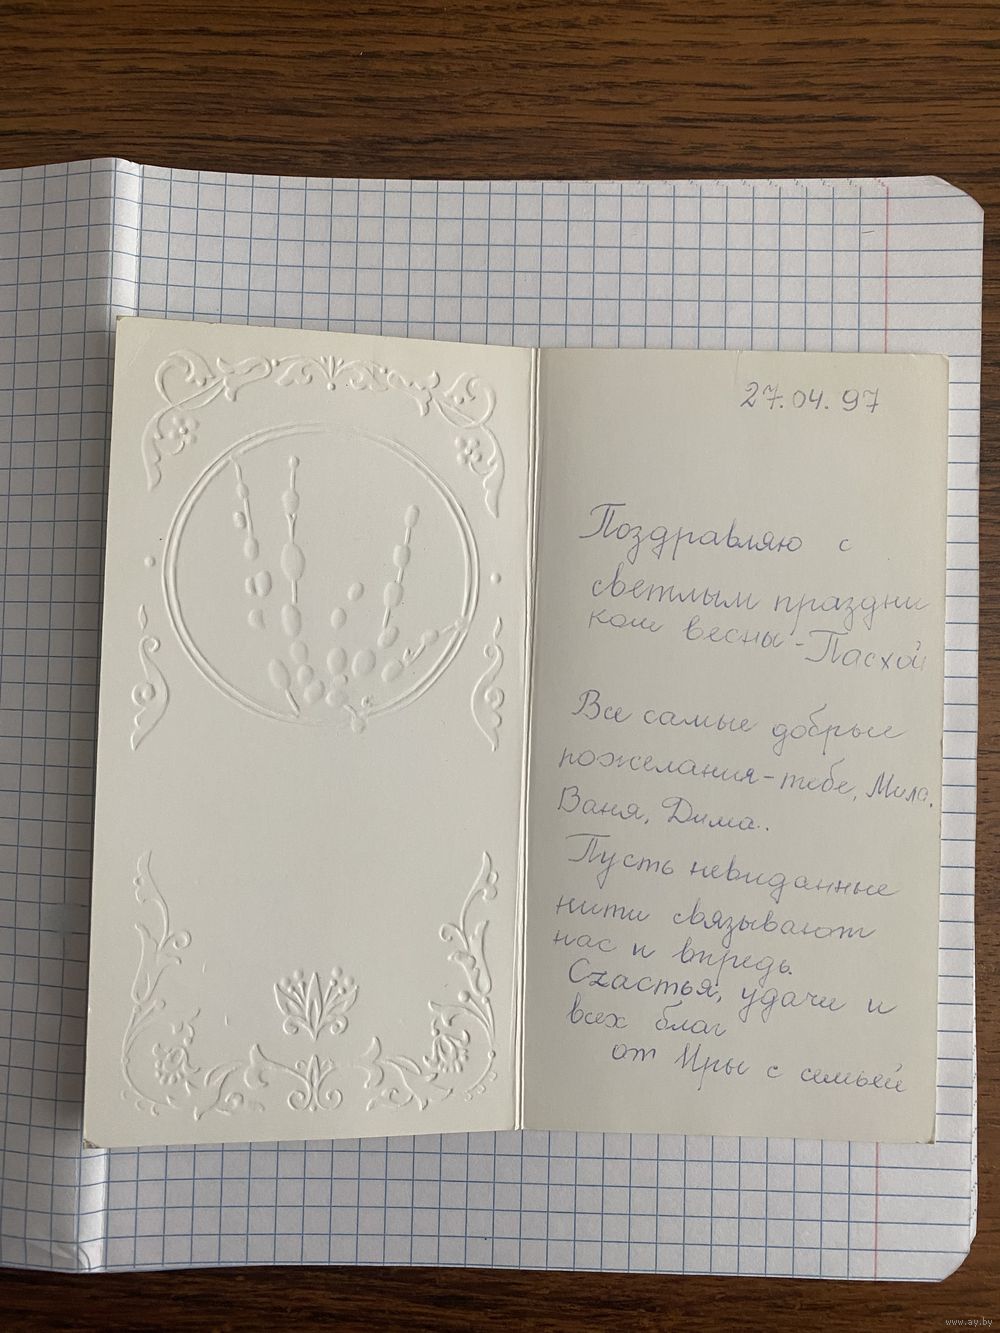 27.04.97
Поздравляю с
светлым праздни
ком весны - Пасхой
Все самые добрые
пожелания - тебе, Мила,
Ваня, Дима..
Пусть невиданные
нити связывают
нас и впредь.
Счастья, удачи и
всех благ
от Иры с семьей
www.ay.by